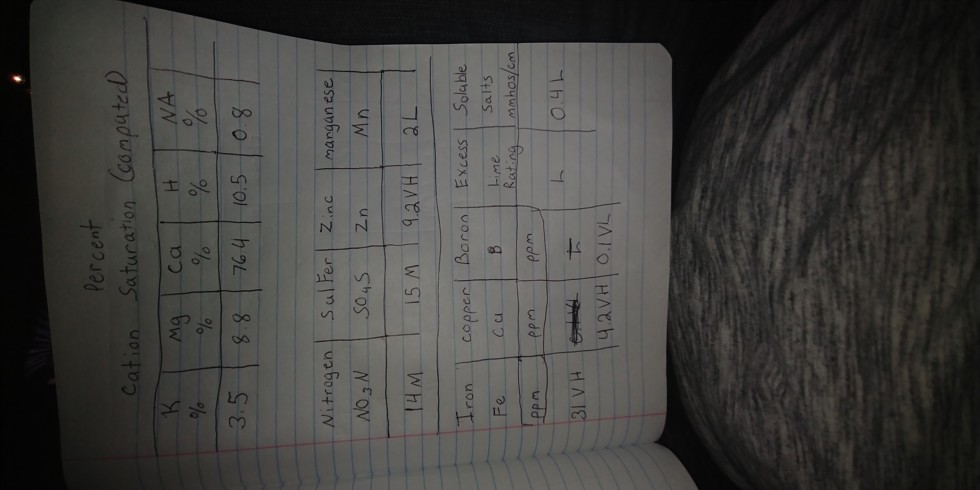 Percent
Cation Saturation (computed)
K Mg Ca H NA
% % % % %
3.5 8.8 76.4 10.5 0.8
Nitrogen Sulfer Zinc manganese
NO3N SO4S Zn Mn
14 M 15 M 9.2VH 2L
Iron copper Boron Excess Soluble
Fe Cu B Lime Salts
Rating mmhos/cm
ppm ppm ppm
31 VH L L 0.4 L
4.2VH 0.1 VL